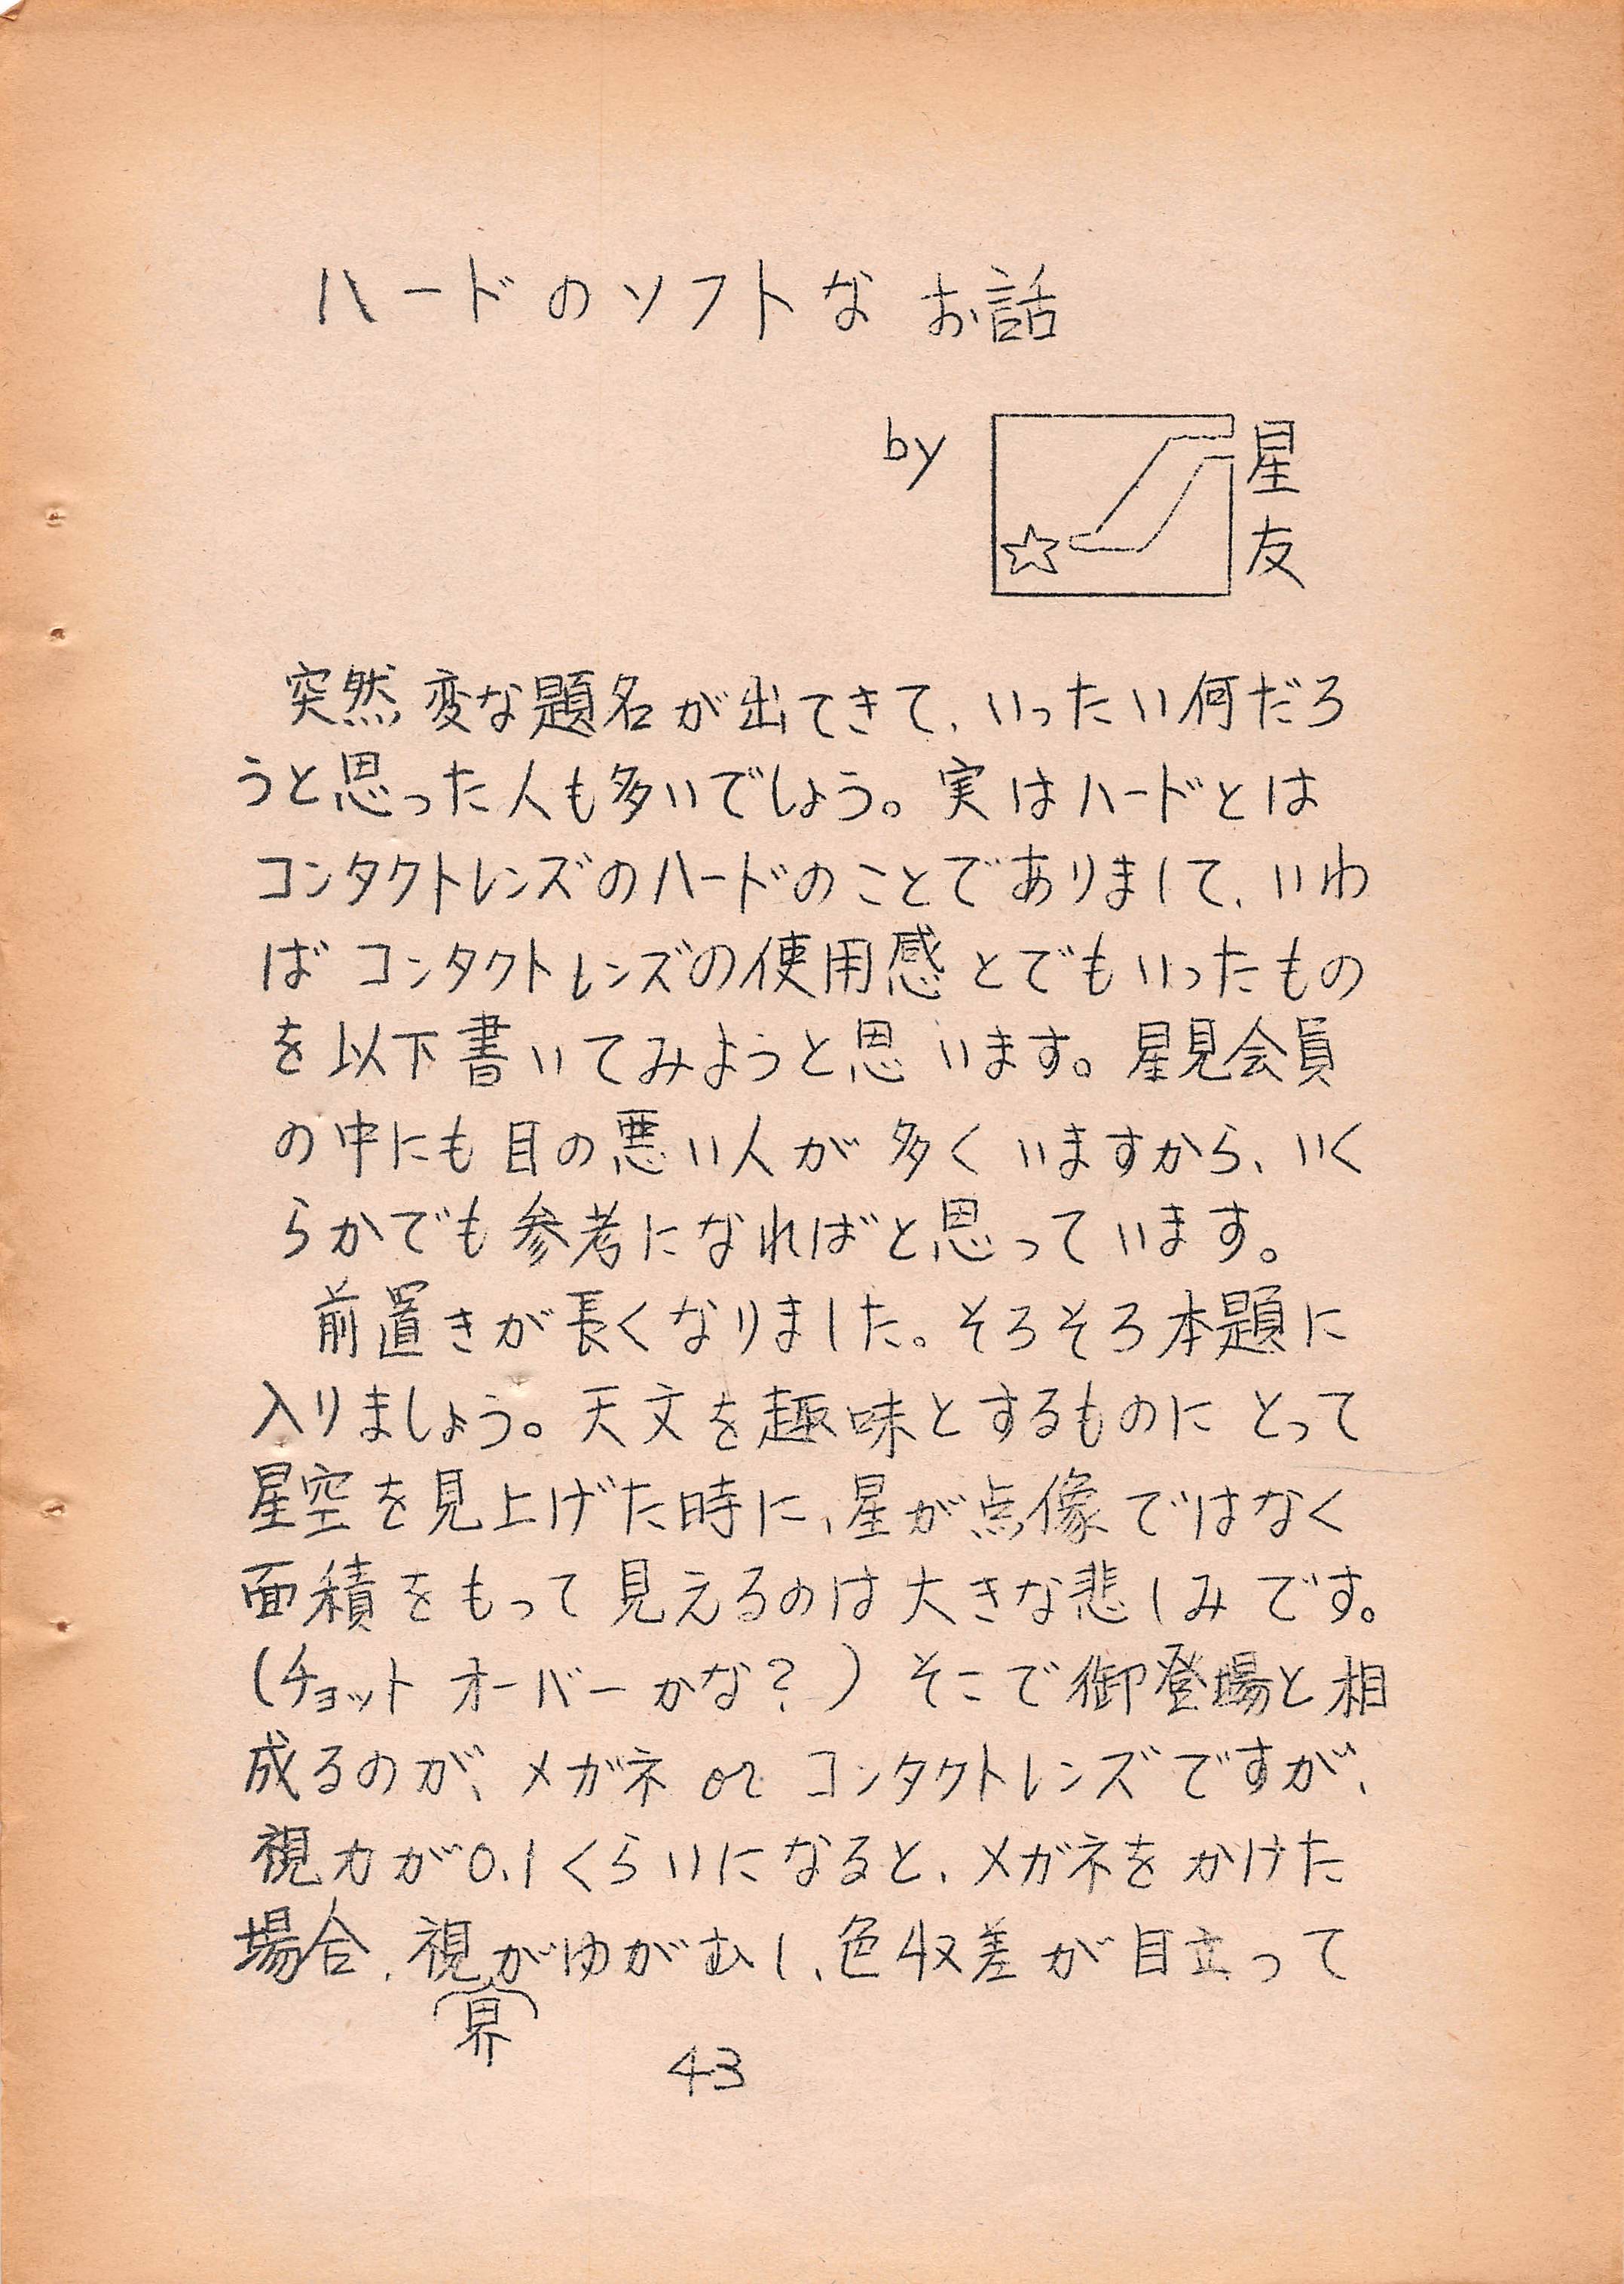 ハードのソフトな お話
by 星友
突然変な題名が出てきて、いったい何だろ
うと思った人も多いでしょう。実はハードとは
コンタクトレンズのハードのことでありまして、いわ
ばコンタクトレンズの使用感とでもいったもの
を以下書いてみようと思います。星見会員
の中にも目の悪い人が多くいますから、いく
らかでも参考になればと思っています。
前置きが長くなりました。そろそろ本題に
入りましょう。天文を趣味とするものにとって
星空を見上げた時に、星が点像ではなく
面積をもって見えるのは大きな悲しみです。
(チョットオーバーかな?) そこで御登場と相
成るのが、メガネ or コンタクトレンズですが、
視力が0.1くらいになると、メガネをかけた
場合、視界がゆがむし、色収差が目立って
43